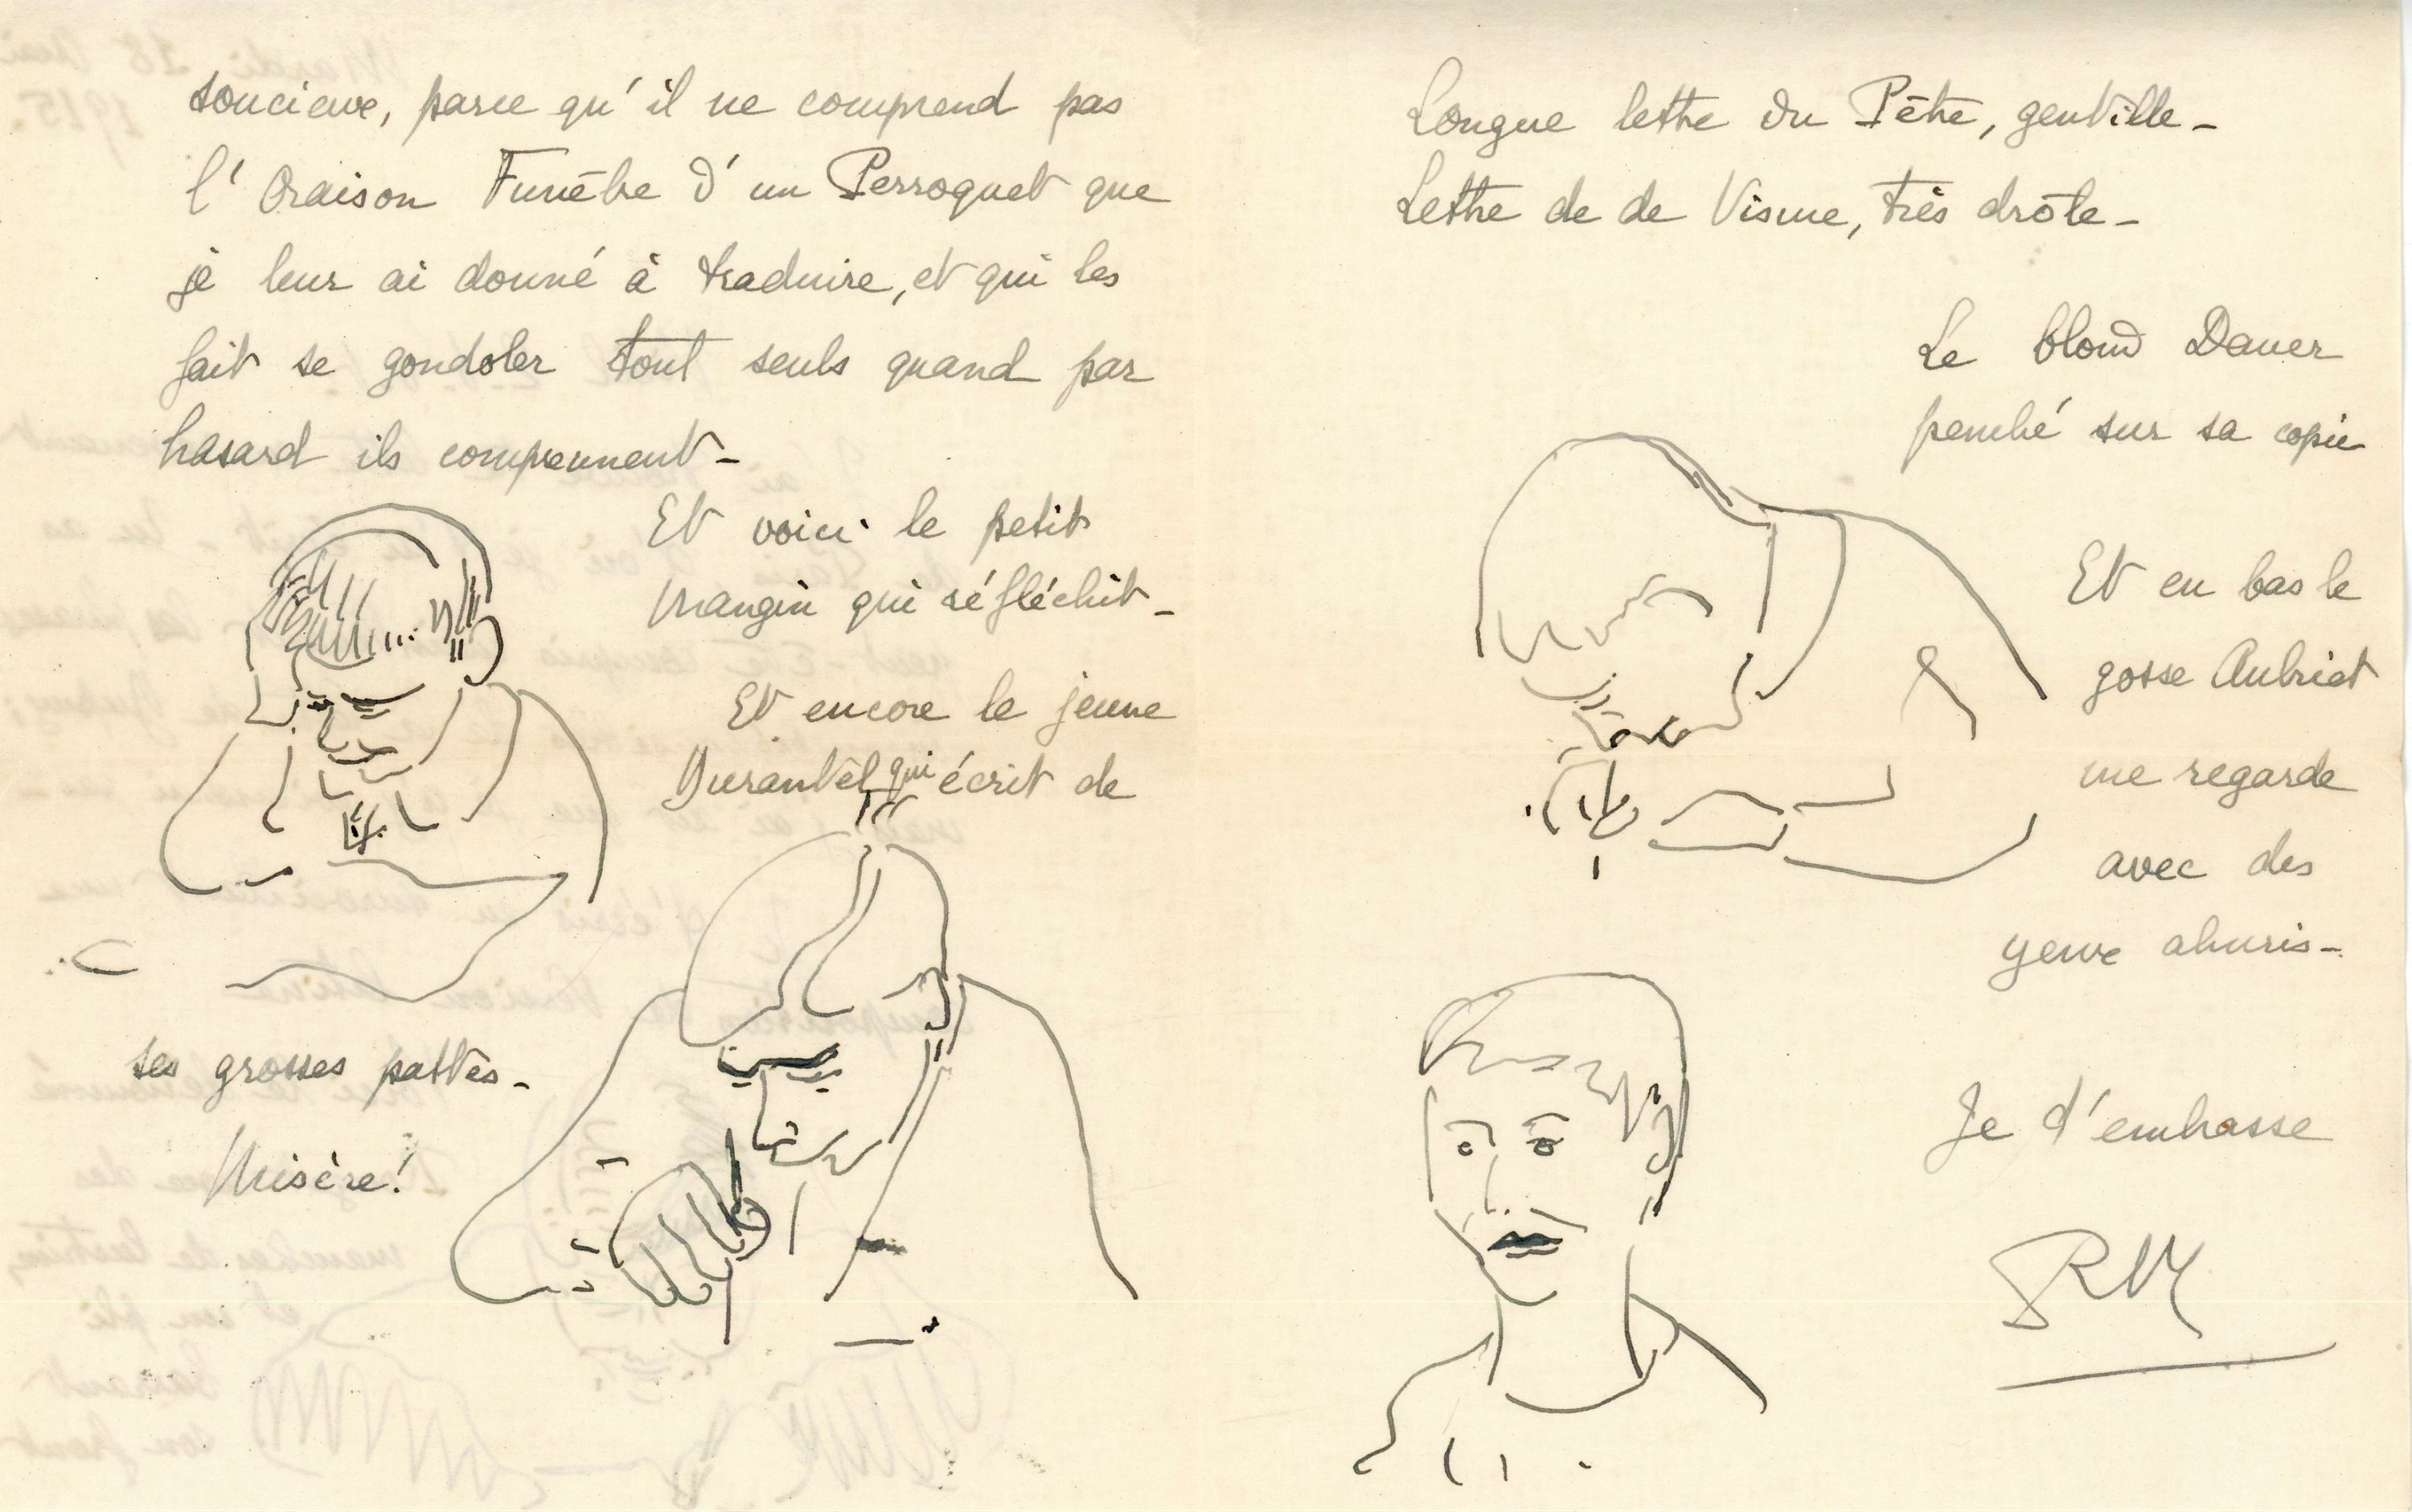 soucieux, parce qu'il ne comprend pas
l'Oraison Funèbre d'un Perroquet que
je leur ai donné à traduire, et qui les
fait se gondoler tout seuls quand par
hasard ils comprennent -
Et voici le petit
Mangin qui réfléchit -
Et encore le jeune
Durantel qui écrit de
ses grosses pattes -
Misère!
Longue lettre du Père, gentille -
Lettre de de Visme, très drôle -
Le blond Daver
penché sur sa copie
Et en bas le
gosse Aubriet
me regarde
avec des
yeux ahuris -
Je t'embrasse
RM
Mardi 18 Mai
1915.